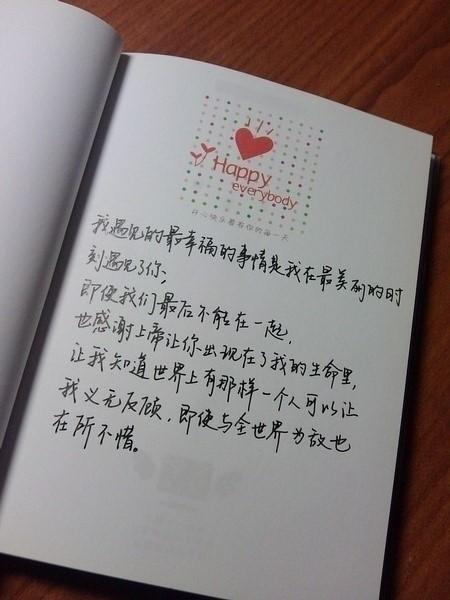 Happy
everybody
开心快乐着看你的每一天
我遇见的最幸福的事情是我在最美丽的时
刻遇见了你,
即使我们最后不能在一起,
也感谢上帝让你出现在了我的生命里,
让我知道世界上有那样一个人可以让
我义无反顾,即使与全世界为敌也
在所不惜。